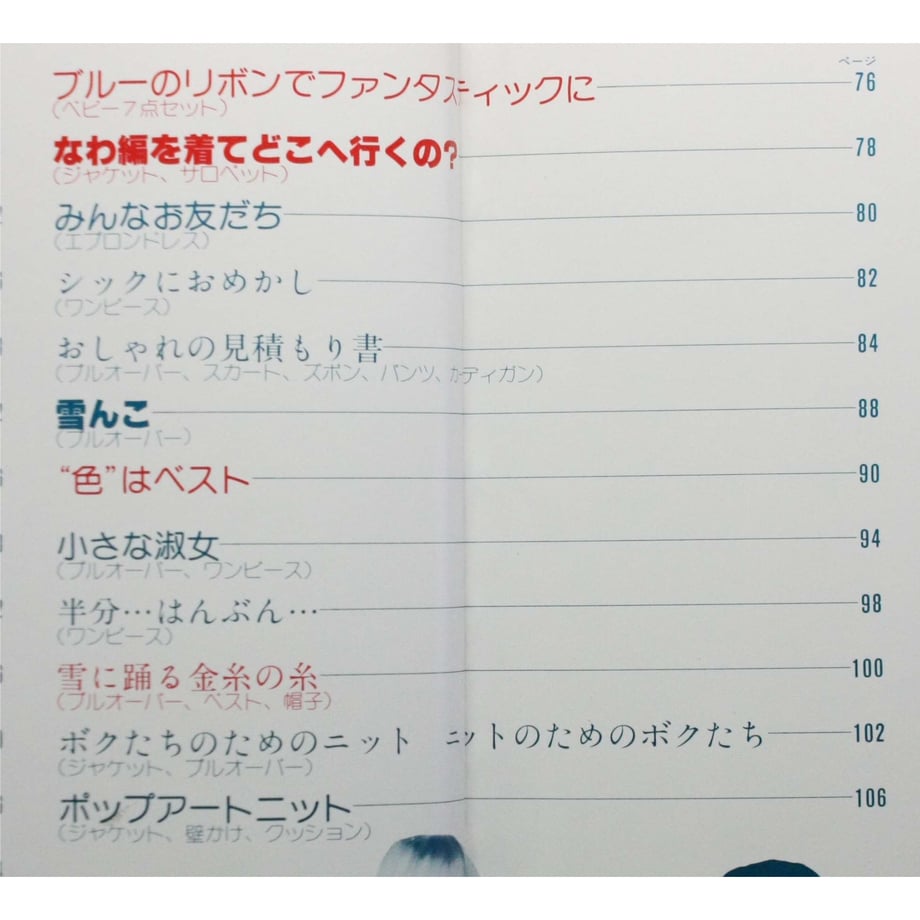 ページ
ブルーのリボンでファンタスティックに 76
(ベビー7点セット)
なわ編を着てどこへ行くの? 78
(ジャケット、サロペット)
みんなお友だち 80
(エプロンドレス)
シックにおめかし 82
(ワンピース)
おしゃれの見積もり書 84
(プルオーバー、スカート、ズボン、パンツ、カーディガン)
雪んこ 88
(プルオーバー)
“色”はベスト 90
小さな淑女 94
(プルオーバー、ワンピース)
半分…はんぶん… 98
(ワンピース)
雪に踊る金糸の糸 100
(プルオーバー、ベスト、帽子)
ボクたちのためのニット ニットのためのボクたち 102
(ジャケット、プルオーバー)
ポップアートニット 106
(ジャケット、壁かけ、クッション)